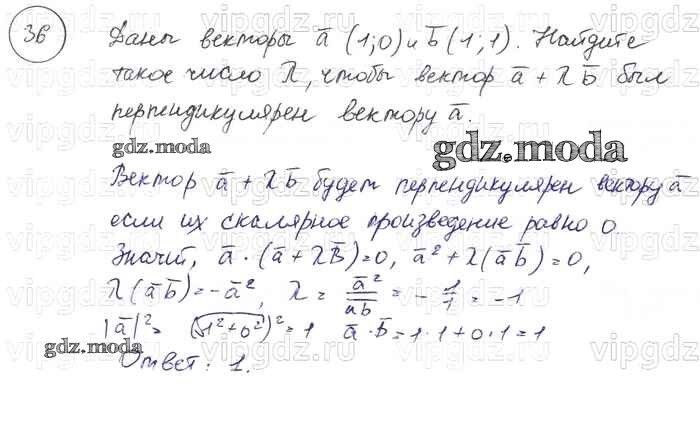 36
Даны векторы a̅ (1;0) и b̅ (1;1). Найдите
такое число λ, чтобы вектор a̅ + λb̅ был
перпендикулярен вектору a̅.
gdz.moda
gdz.moda
Вектор a̅ + λb̅ будет перпендикулярен вектору a̅
если их скалярное произведение равно 0.
Значит, a̅ · (a̅ + λb̅) = 0, a̅² + λ(a̅b̅) = 0,
λ(a̅b̅) = -a̅², λ = a̅²/a̅b̅ = -1/1 = -1
|a̅|² = (√1²+0²)² = 1 a̅ · b̅ = 1·1+0·1=1
gdz.moda
gdz.moda
Ответ: 1.